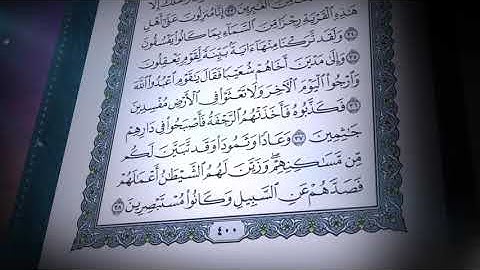 هَٰذِهِ ٱلْقَرْيَةِ رِجْزًا مِّنَ ٱلسَّمَآءِ بِمَا كَانُوا۟ يَفْسُقُونَ
۝٣٤ وَلَقَد تَّرَكْنَا مِنْهَآ ءَايَةًۢ بَيِّنَةً لِّقَوْمٍ يَعْقِلُونَ
۝٣٥ وَإِلَىٰ مَدْيَنَ أَخَاهُمْ شُعَيْبًا فَقَالَ يَٰقَوْمِ ٱعْبُدُوا۟ ٱللَّهَ
وَٱرْجُوا۟ ٱلْيَوْمَ ٱلْءَاخِرَ وَلَا تَعْثَوْا۟ فِى ٱلْأَرْضِ مُفْسِدِينَ
۝٣٦ فَكَذَّبُوهُ فَأَخَذَتْهُمُ ٱلرَّجْفَةُ فَأَصْبَحُوا۟ فِى دَارِهِمْ
جَٰثِمِينَ ۝٣٧ وَعَادًا وَثَمُودَا۟ وَقَد تَّبَيَّنَ لَكُم
مِّن مَّسَٰكِنِهِمْ ۖ وَزَيَّنَ لَهُمُ ٱلشَّيْطَٰنُ أَعْمَٰلَهُمْ
فَصَدَّهُمْ عَنِ ٱلسَّبِيلِ وَكَانُوا۟ مُسْتَبْصِرِينَ ۝٣٨
٤٠٠